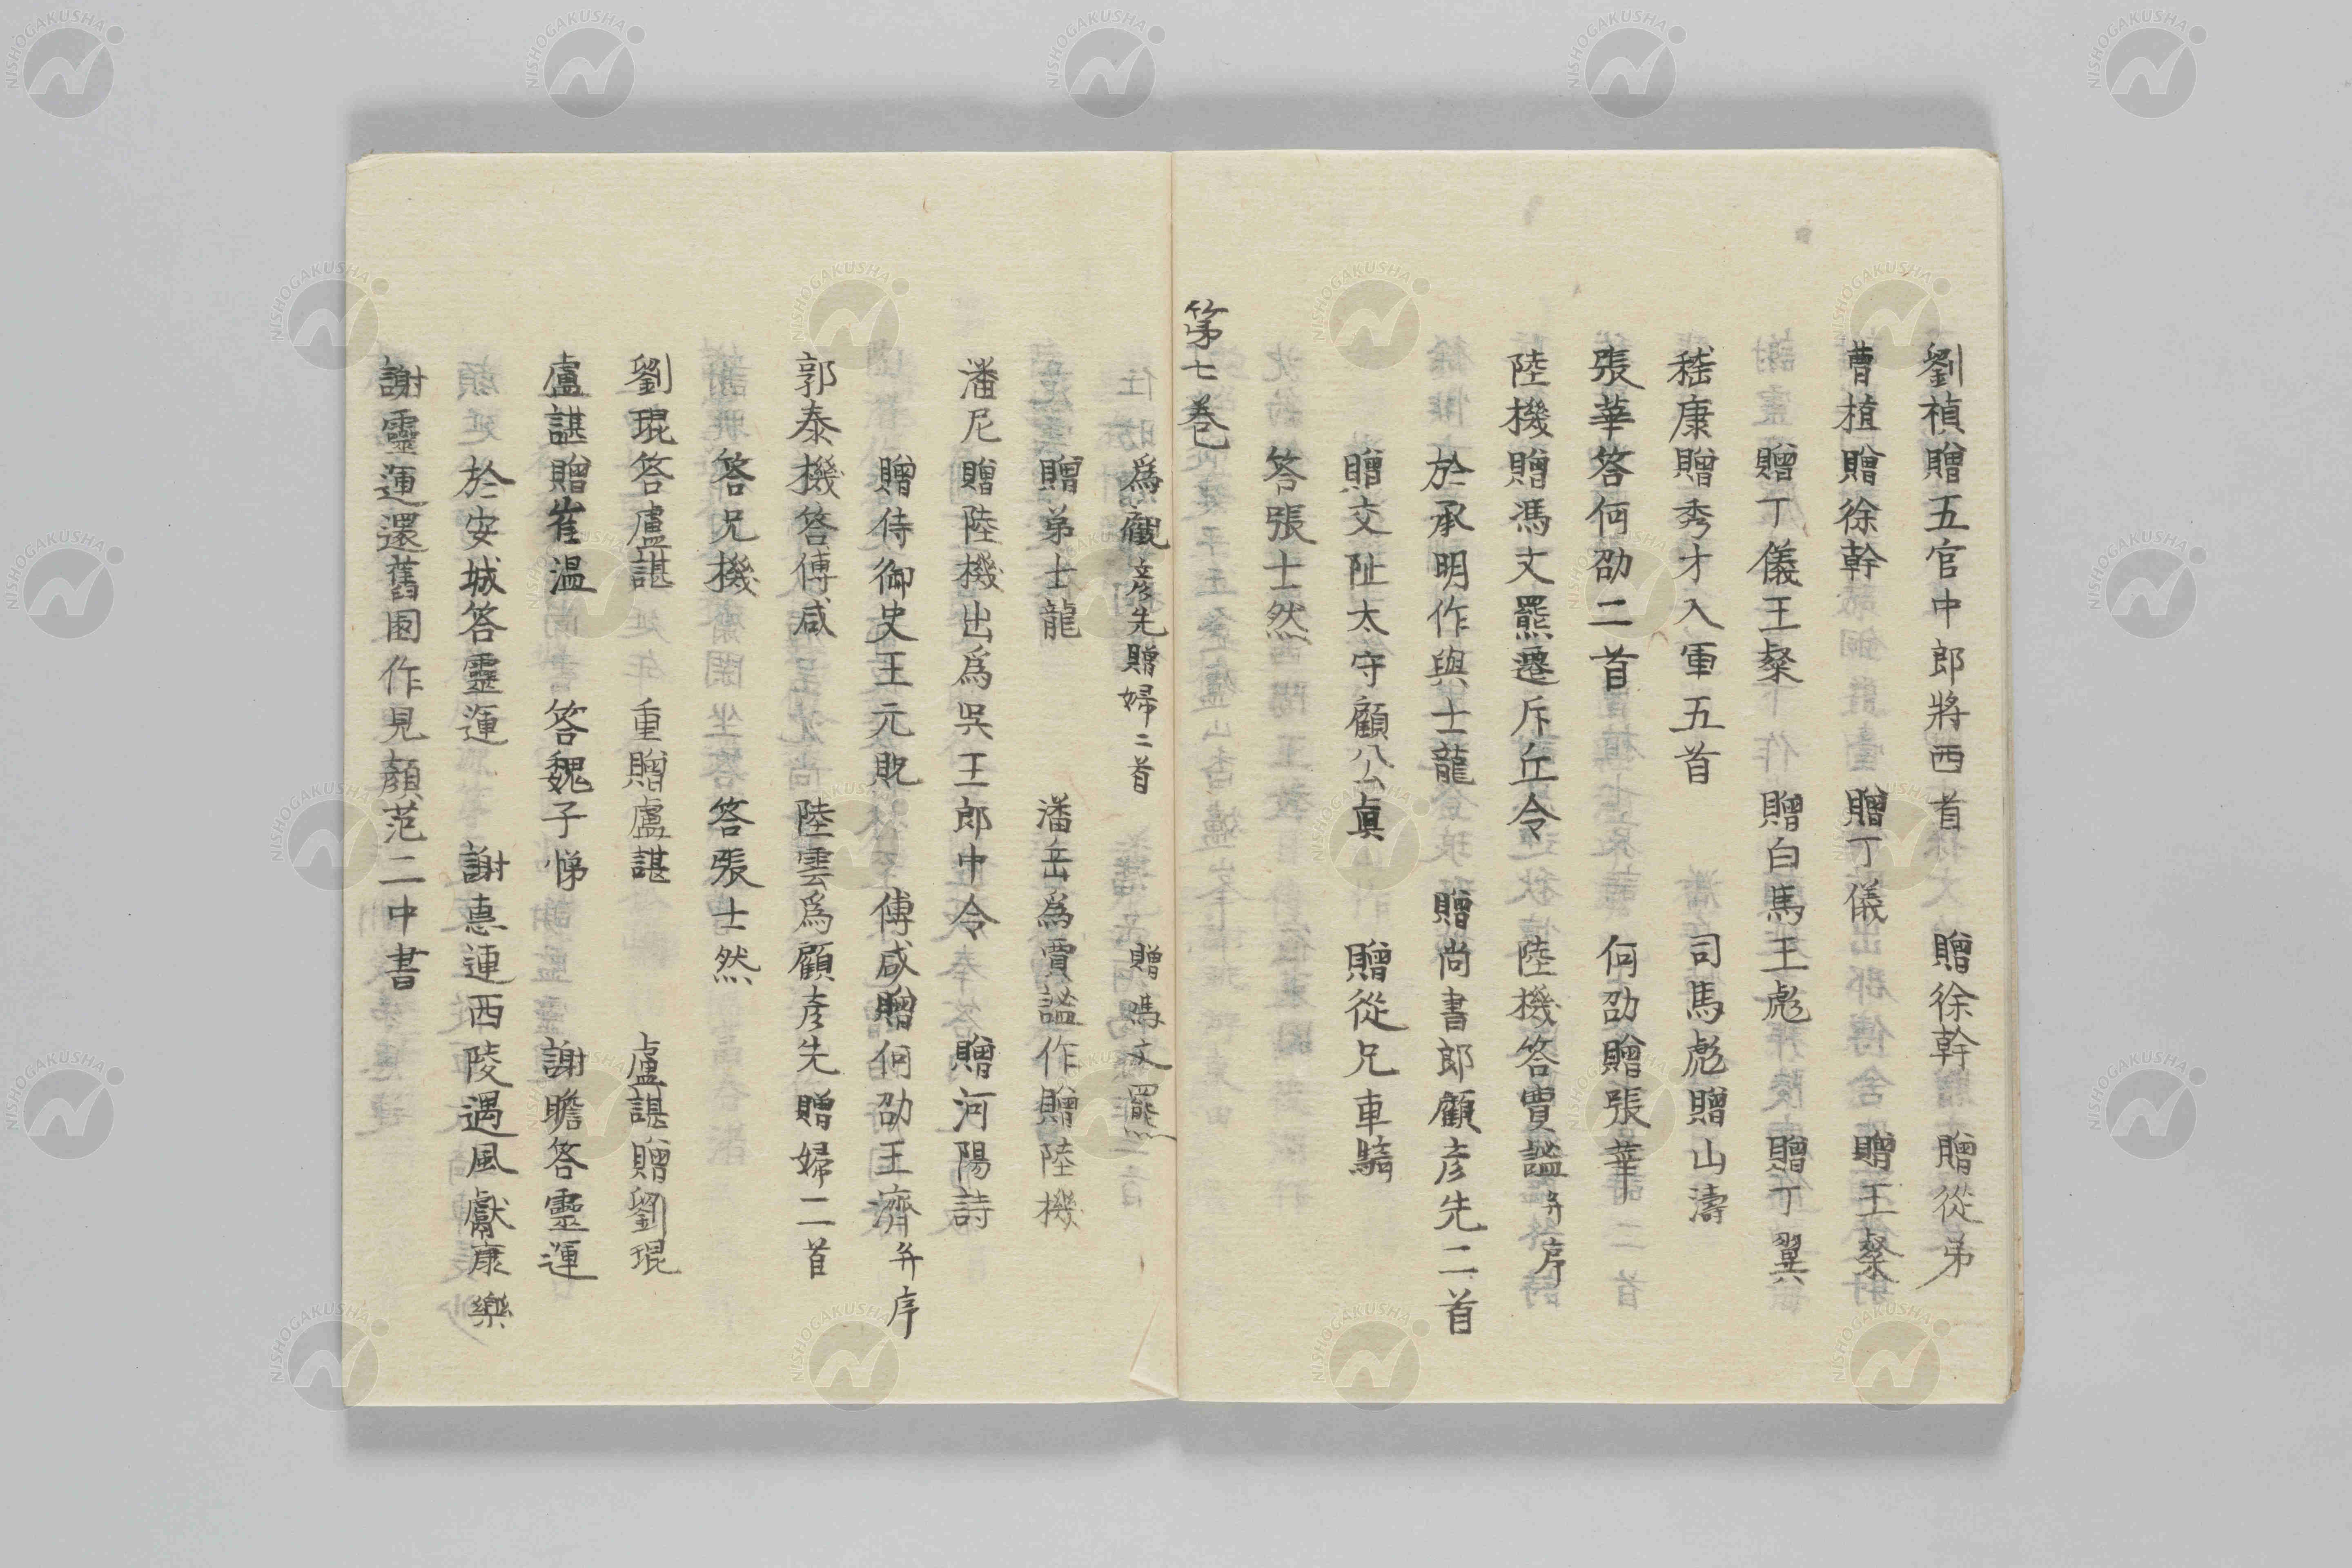 劉楨贈五官中郎將西首 贈徐幹 贈從弟
曹植贈徐幹 贈丁儀 贈王粲
贈丁儀王粲 贈白馬王彪 贈丁翼
嵇康贈秀才入軍五首 司馬彪贈山濤
張華答何劭二首 何劭贈張華
陸機贈馮文羆遷斥丘令 陸機答賈謐并序
於承明作與士龍 贈尚書郎顧彦先二首
贈交阯太守顧公眞 贈從兄車騎
答張士然
第七巻
為顧彦先贈婦二首 贈馮文羆
贈弟士龍 潘岳為賈謐作贈陸機
潘尼贈陸機出為吳王郎中令 贈河陽詩
贈侍御史王元貺 傅咸贈何劭王濟并序
郭泰機答傅咸 陸雲為顧彦先贈婦二首
答兄機 答張士然
劉琨答盧諶 重贈盧諶 盧諶贈劉琨
盧諶贈崔温 答魏子悌 謝瞻答靈運
於安城答靈運 謝惠連西陵遇風獻康樂
謝靈運還舊園作見顔范二中書
NISHOGAKUSHA